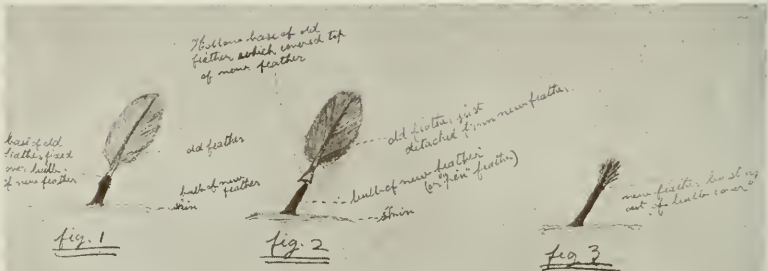 Hollow base of old
feather which covered top
of new feather
base of old
feather fixed
over bulb
of new feather
old feather
bulb of new
feather
skin
fig. 1
old feather just
detached from new feather.
bulb of new feather
(or "pen" feather)
skin
fig. 2
new feather bursting
out of "bulb cover"
fig 3